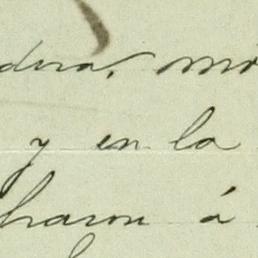 dera, mo
y en la
haron á